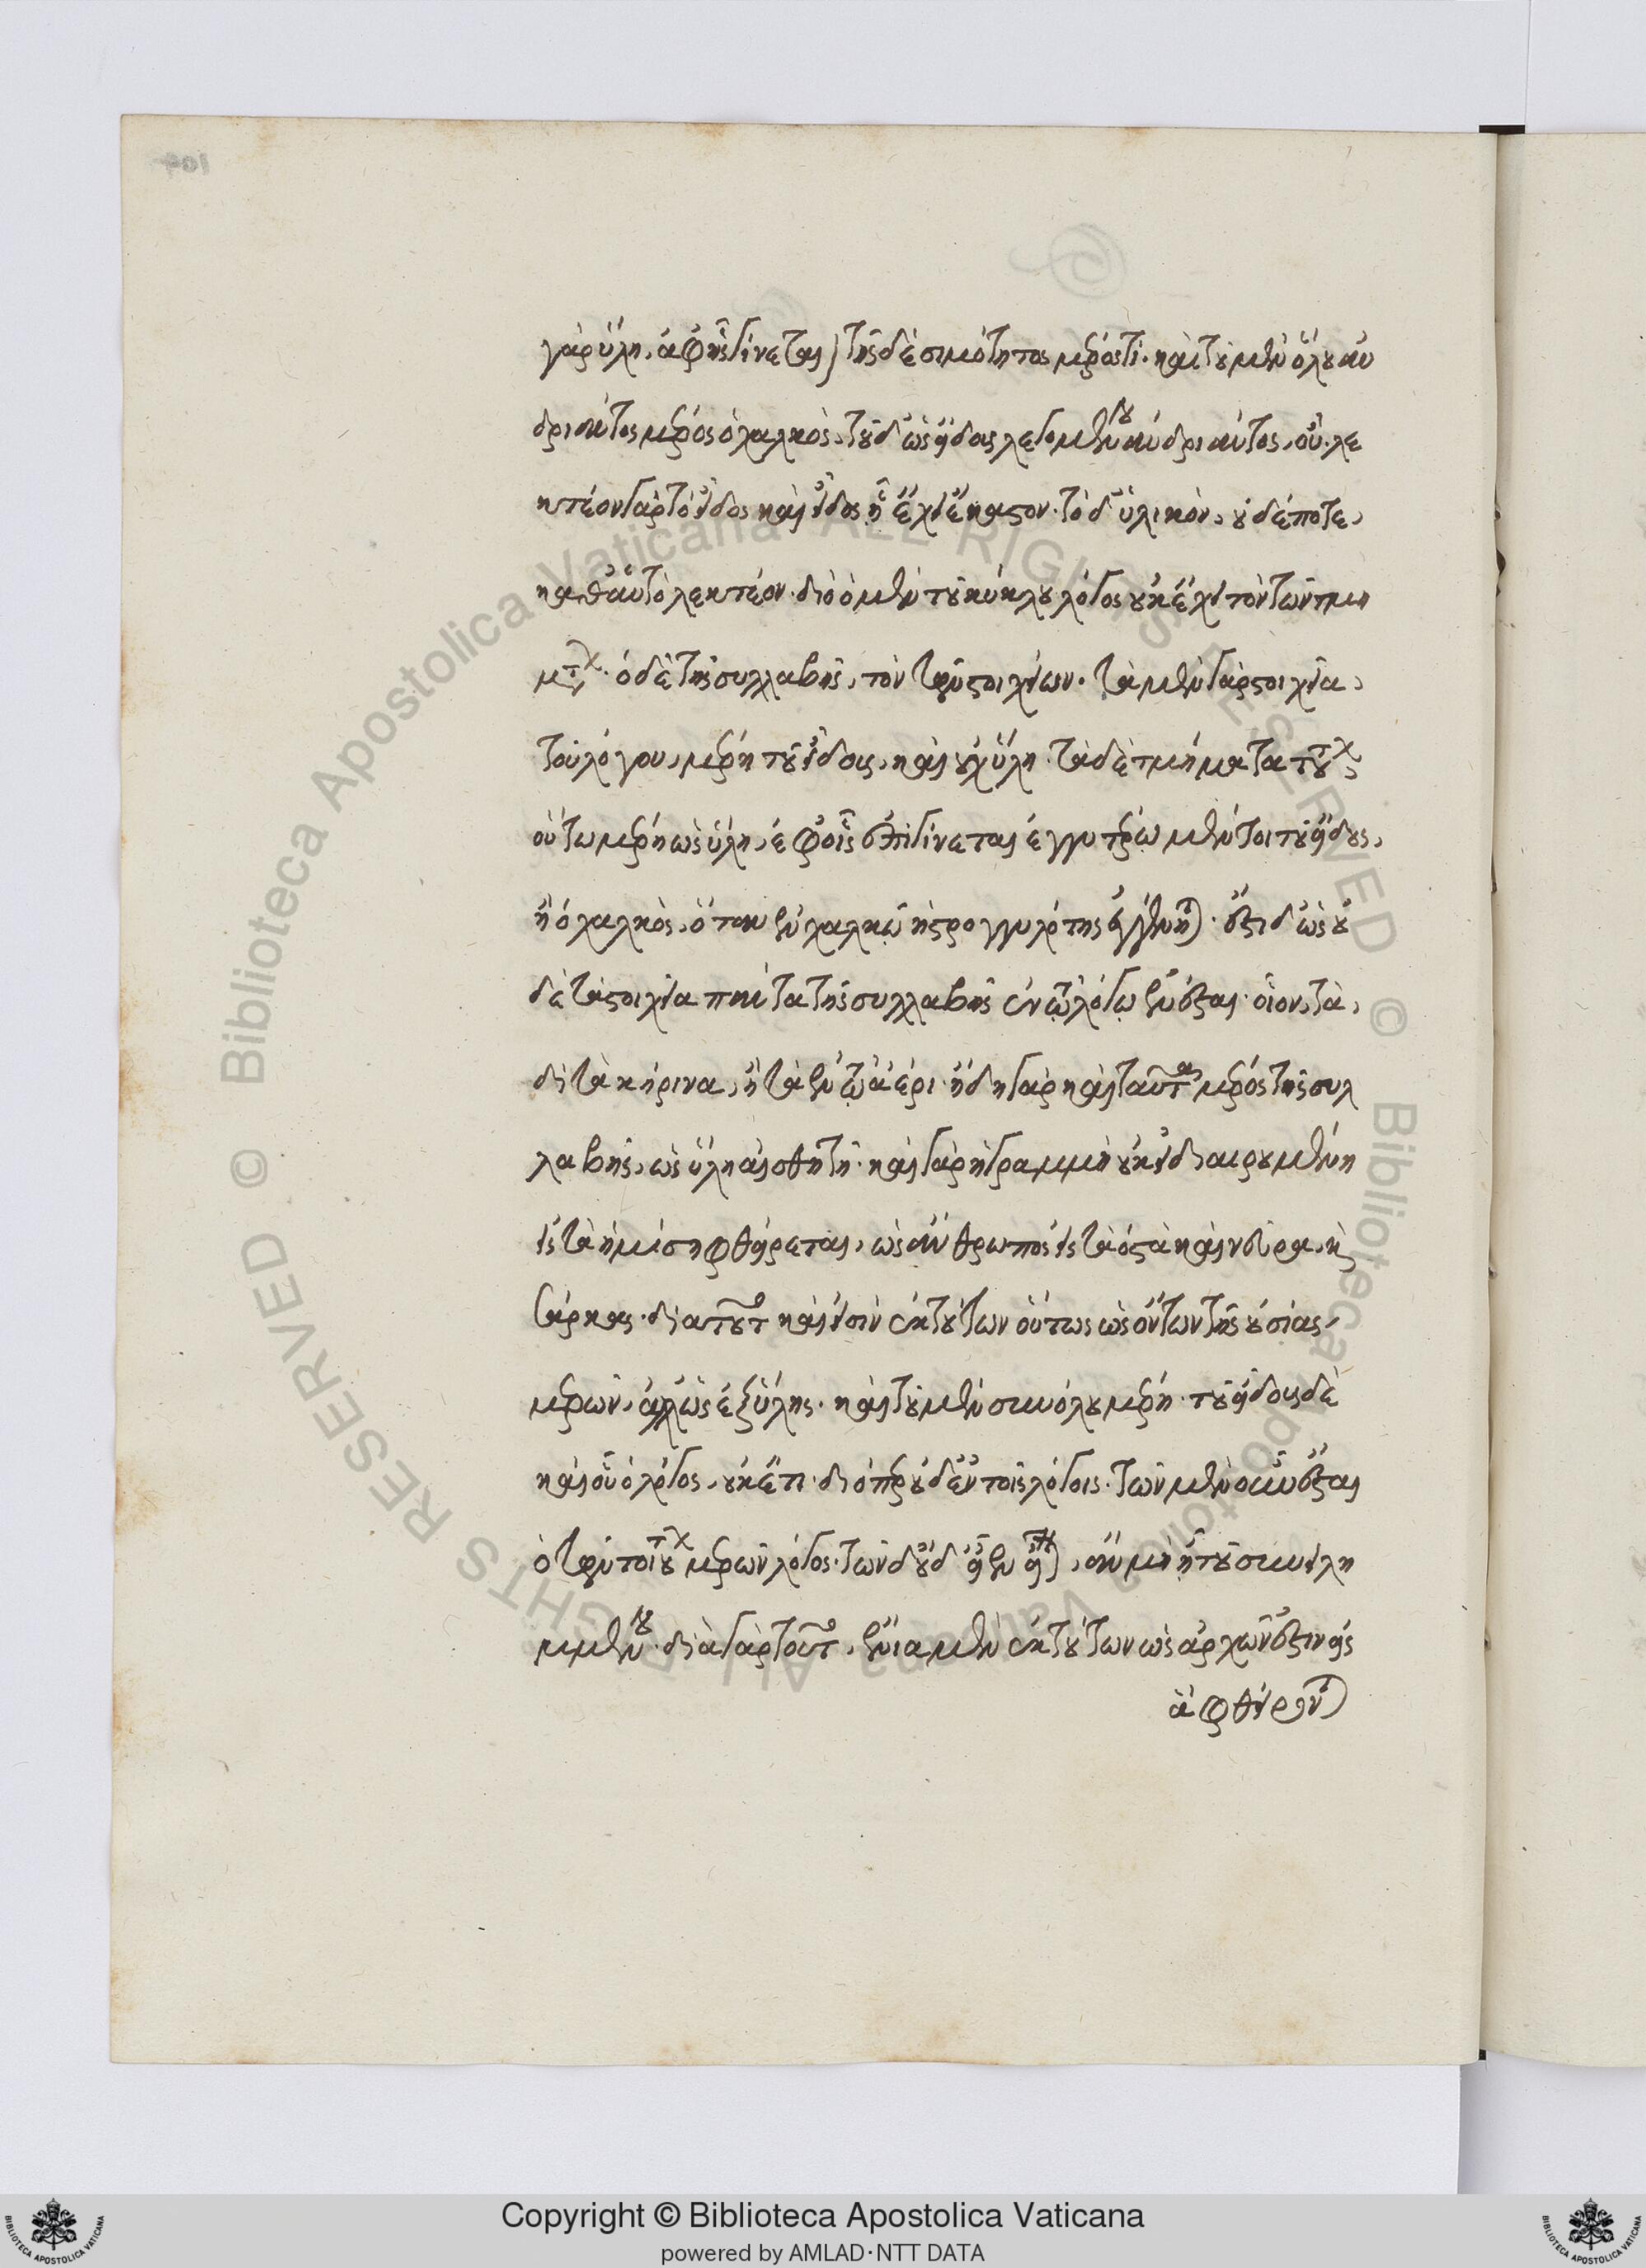 γὰρ ὕλη, ἀφ' ἧς γίνεται) τῆς δὲ σιμότητος μέρος τί. καὶ τοῦ μὲν ὅλου ἀν
δριάντος μέρος ὁ χαλκὸς, τοῦ δ' ὡς εἴδους λεγομένου ἀνδριάντος, οὔ. λε
κτέον γὰρ τὸ εἶδος καὶ ᾗ εἶδος ἔχει ἕκαστον. τὸ δ' ὑλικὸν, οὐδέποτε,
καθ' αὑτὸ λεκτέον. διὸ ὁ μὲν τοῦ κύκλου λόγος οὐκ ἔχει τὸν τῶν τμη
μάτων. ὁ δὲ τῆς συλλαβῆς, τὸν τῶν στοιχείων. τὰ μὲν γὰρ στοιχεῖα,
τοῦ λόγου, μέρη τοῦ εἴδους, καὶ οὐχ ὕλη. τὰ δὲ τμήματα
οὕτω μέρη ὡς ὕλη, ἐφ' οἷς ἐπιγίνεται ἐγγυτέρω μέντοι τοῦ εἴδους,
ἢ ὁ χαλκὸς, ὅταν ἐν χαλκῷ ἡ στρογγυλότης ἐγγένηται. ἔστι δ' ὡς οὐ
δὲ τὰ στοιχεῖα πάντα τῆς συλλαβῆς ἐν τῷ λόγῳ ἐνέσται. οἷον, τὰ,
δὶ τὰ κήρινα, ἢ τὰ ἐν τῷ ἀέρι. ἤδη γὰρ καὶ ταῦτα μέρος τῆς συλ
λαβῆς, ὡς ὕλη αἰσθητή. καὶ γὰρ ἡ γραμμὴ οὐκ εἰ διαιρουμένη
εἰς τὰ ἡμίση φθείρεται, ὡς ἄνθρωπος εἰς τὰ ὀστᾶ καὶ νεῦρα, καὶ
σάρκας. διὰ τοῦτο καὶ εἰσὶν ἐκ τούτων οὕτως ὡς ὄντων τῆς οὐσίας,
μερῶν, ἀλλ' ὡς ἐξ ὕλης. καὶ τοῦ μὲν συνόλου μέρη. τοῦ εἴδους δὲ
καὶ οὗ ὁ λόγος, οὐκέτι. διόπερ οὐδ' ἐν τοῖς λόγοις. τῶν μὲν οὖν ἐνέσται
ὁ τῶν τοιούτων μερῶν λόγος. τῶν δ' οὐ δεῖ ἐνεῖναι, ἂν μὴ ᾖ τοῦ συνειλη
μμένου. διὰ γὰρ τοῦτο, ἔνια μὲν ἐκ τούτων ὡς ἀρχῶν ἐστὶν εἰς
ἃ φθείρονται